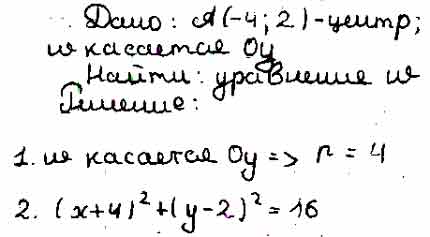 Дано: A(-4; 2)-центр;
ω касается Oy
Найти: уравнение ω
Решение:
1. ω касается Oy => r = 4
2. (x+4)²+(y-2)²=16